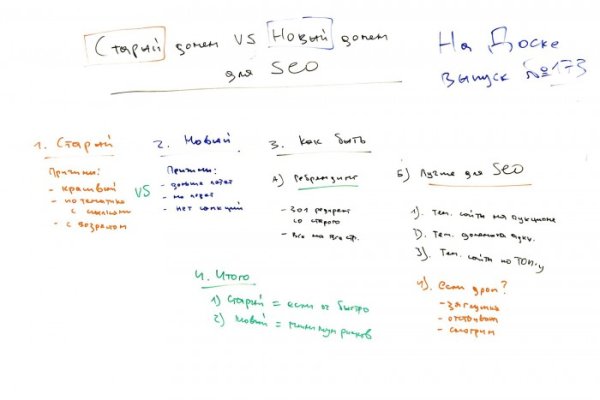 Старый домен VS Новый домен
для SEO
На Доске
выпуск №173
1. Старый
Причины:
- красивый
- по тематике
с ссылками
- с возрастом
VS
2. Новый
Причины:
- дольше
- нет санкций
3. Как быть
А) Ребрендинг
- 301 редирект
со старого
- все на все стр.
Б) Лучше для SEO
1). Тем. сайты на аукционе
2). Тем. домены
3). Тем. сайты по ТОП-у
4). Если дроп?
- загрузка
- отстаивам
- смотрим
4. Итого
1) Старый = если оч быстро
2) Новый = минимум рисков